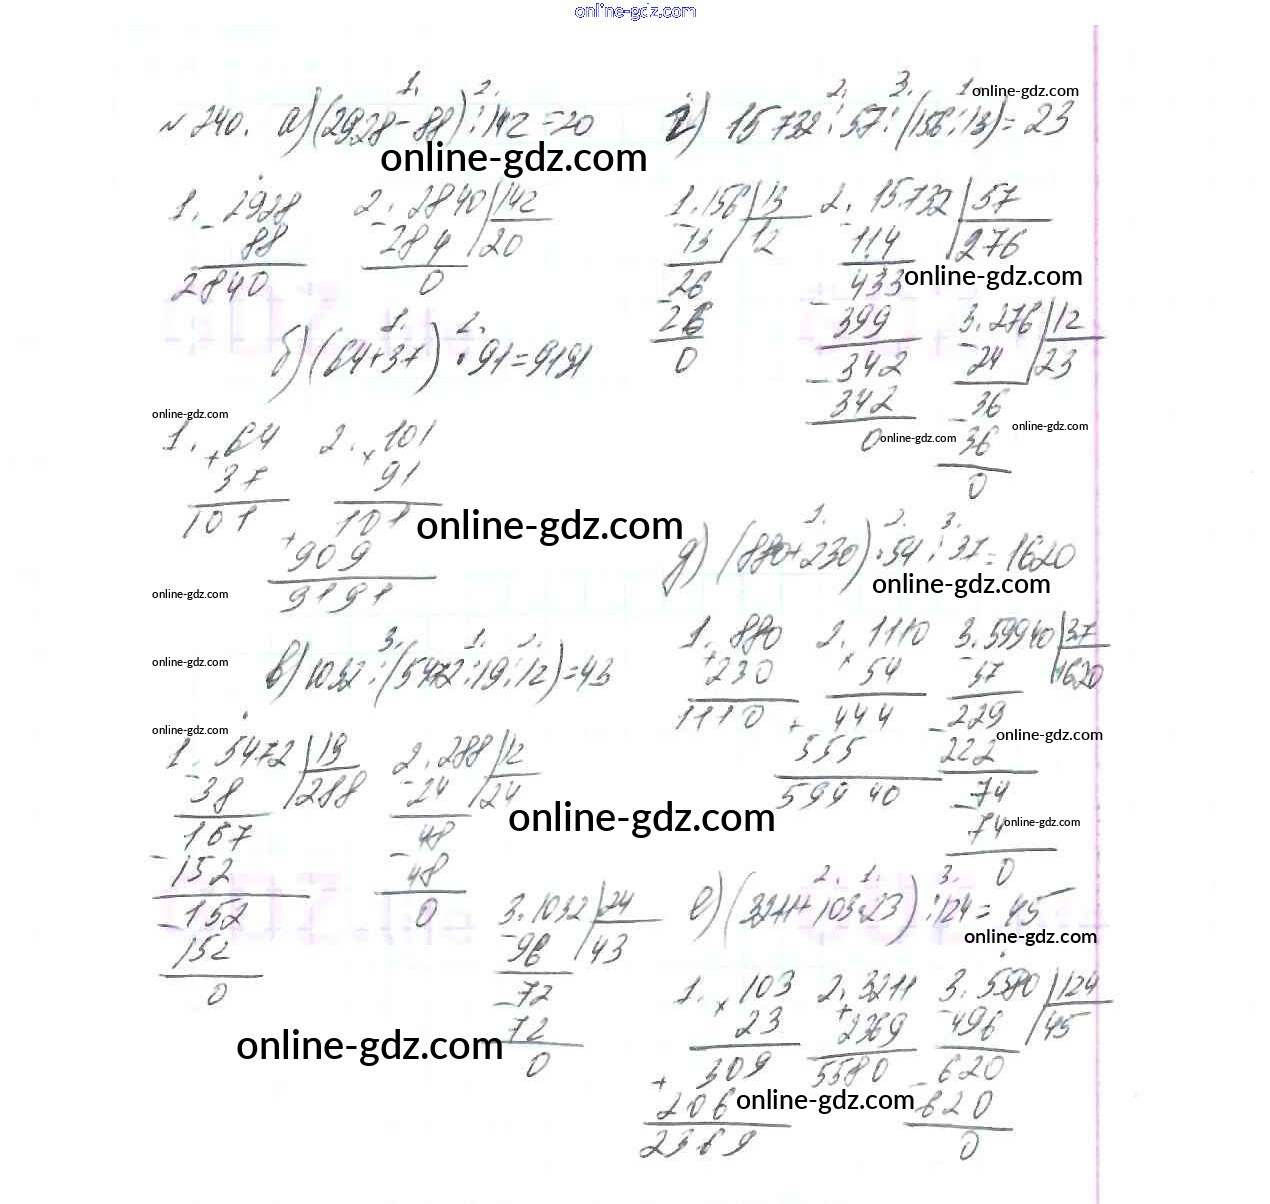 online-gdz.com
№ 240. а) (2928 - 88) : 142 = 20
1. 2.
online-gdz.com
1. - 2928
88
2840
2. - 2840 | 142
284 | 20
0
б) (64 + 37) · 91 = 9191
1. 2.
online-gdz.com
1. + 64
37
101
2. × 101
91
101
+ 909
9191
online-gdz.com
online-gdz.com
online-gdz.com
в) 1032 : (5472 : 19 : 12) = 43
3. 1. 2.
online-gdz.com
1. - 5472 | 19
38 | 288
167
- 152
- 152
152
0
2. - 288 | 12
24 | 24
48
- 48
0
online-gdz.com
3. - 1032 | 24
96 | 43
- 72
72
0
online-gdz.com
г) 15732 : 57 : (156 : 13) = 23
2. 3. 1
online-gdz.com
1. - 156 | 13
13 | 12
26
- 26
0
2. - 15732 | 57
114 | 276
433
- 399
- 342
342
0
online-gdz.com
3. - 276 | 12
24 | 23
- 36
36
0
online-gdz.com
online-gdz.com
д) (880 + 230) · 54 : 37 = 1620
1. 2. 3.
online-gdz.com
1. + 880
230
1110
2. × 1110
54
+ 444
555
59940
3. - 59940 | 37
37 | 1620
- 229
222
- 74
74
0
online-gdz.com
online-gdz.com
е) (3211 + 103 · 23) : 124 = 45
2. 1. 3.
online-gdz.com
1. × 103
23
+ 309
206
2369
2. + 3211
2369
5580
3. - 5580 | 124
496 | 45
- 620
620
0
online-gdz.com